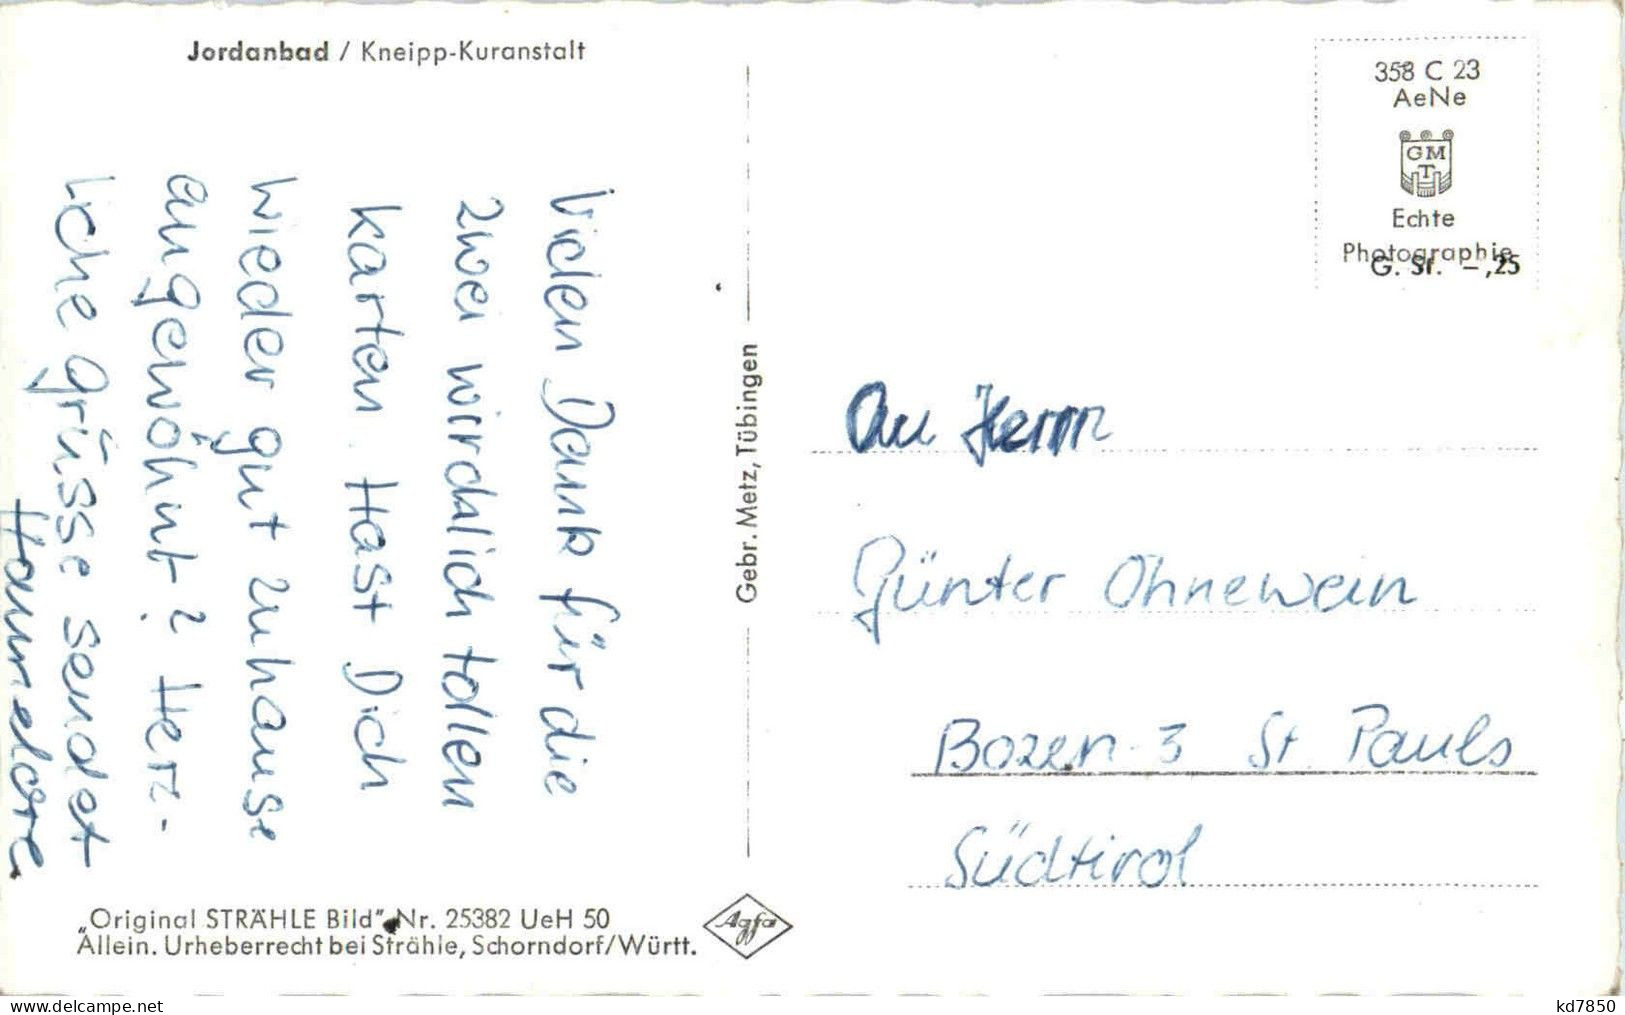 Jordanbad / Kneipp-Kuranstalt
Vielen Dank für die
zwei wirdklich tollen
Karten. Hast Dich
wieder gut zuhause
eingewöhnt? Herz-
liche grüsse sendet
Hannelore
„Original STRÄHLE Bild” Nr. 25382 UeH 50
Allein. Urheberrecht bei Strähle, Schorndorf/Württ.
Agfa
Gebr. Metz, Tübingen
358 C 23
AeNe
GM
T
Echte
Photographie
G. St. –,25
An Herrn
Günter Ohnewein
Bozen-3 St Pauls
Südtirol
www.delcampe.net
kd7850